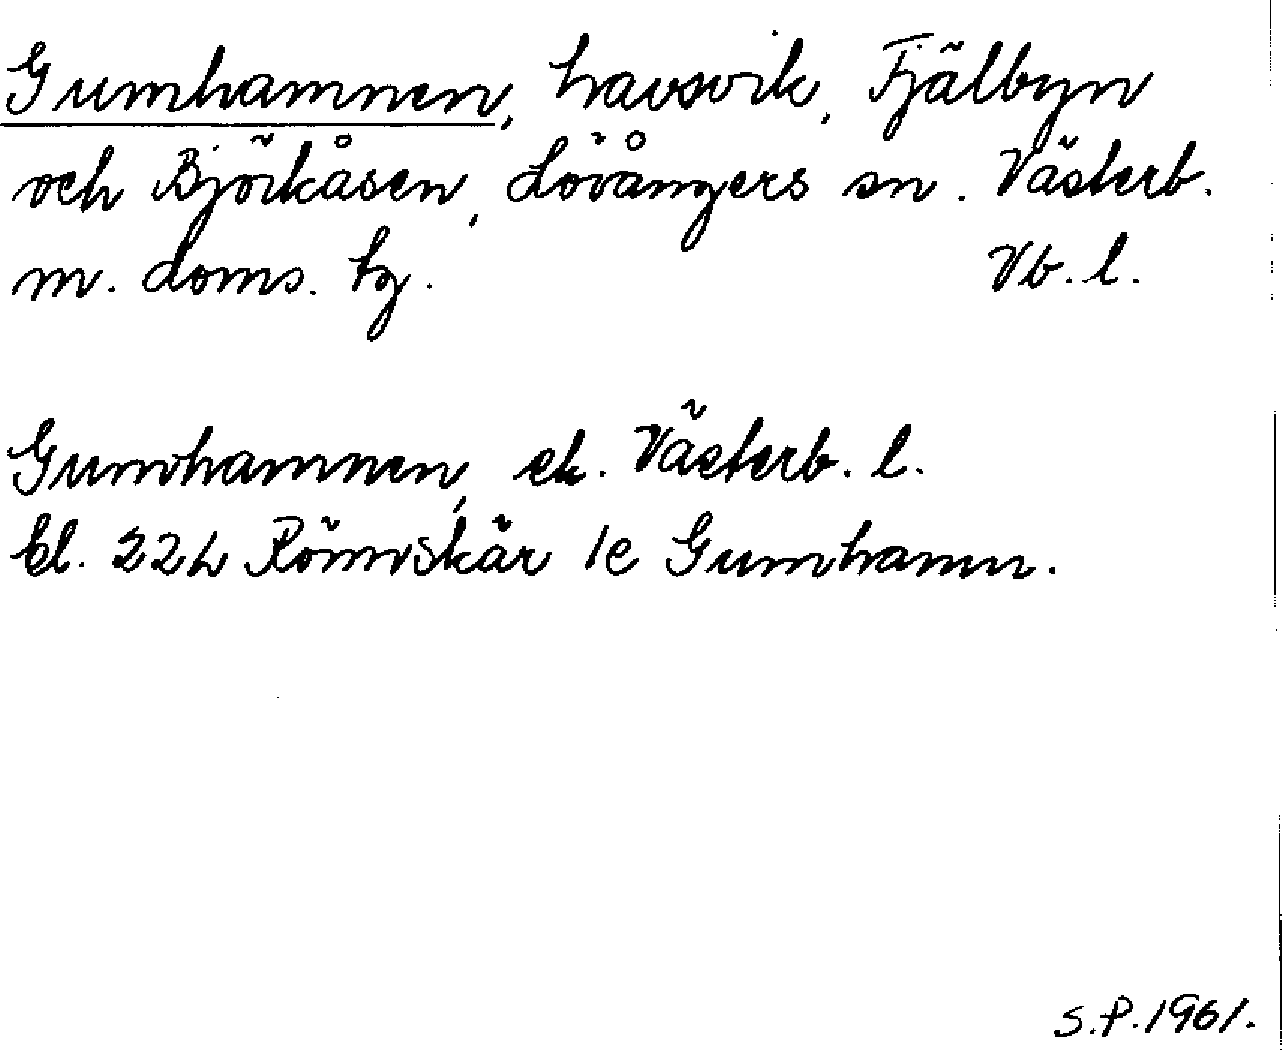 Gumhamnen, havsvik, Fjälbyn
och Björkåsen, Lövångers sn. Västerb.
m. doms. tg. Vb. l.
Gumhamnen, ek. Västerb. l.
bl. 22L Rönnskär 1e Gumhamn.
S.P. 1961.